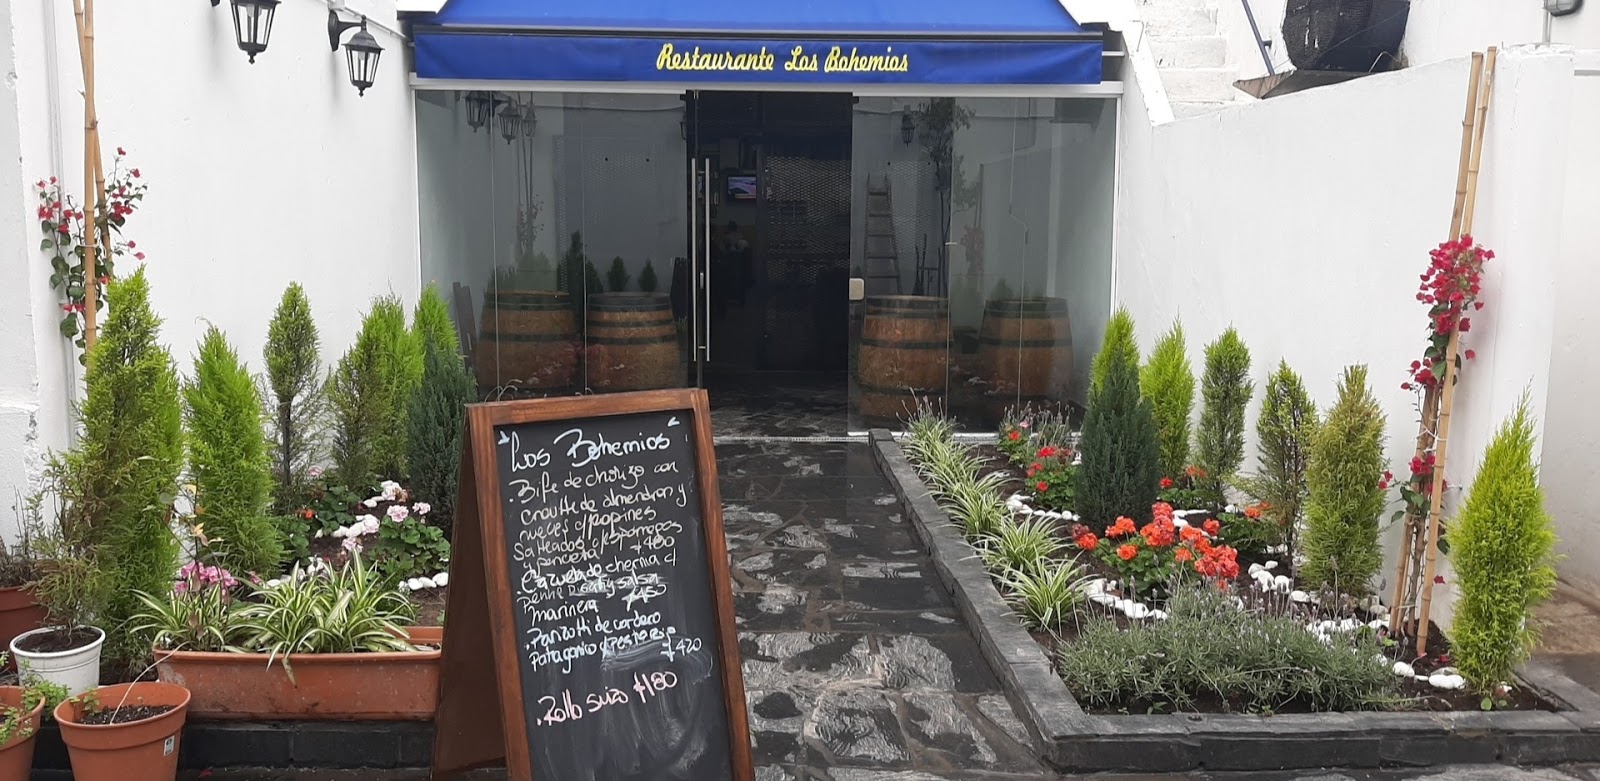 Restaurante Los Bohemios
Los Bohemios
.Bife de chorizo con
croutte de almendras y
nueces c/papines
Salteados c/esparragos
y panceta 480
Cazuela de chernia c/
Penne y salsa
marinera 450
.Panzotti de cordero
Patagonico c/
420
.Rollo suizo 180